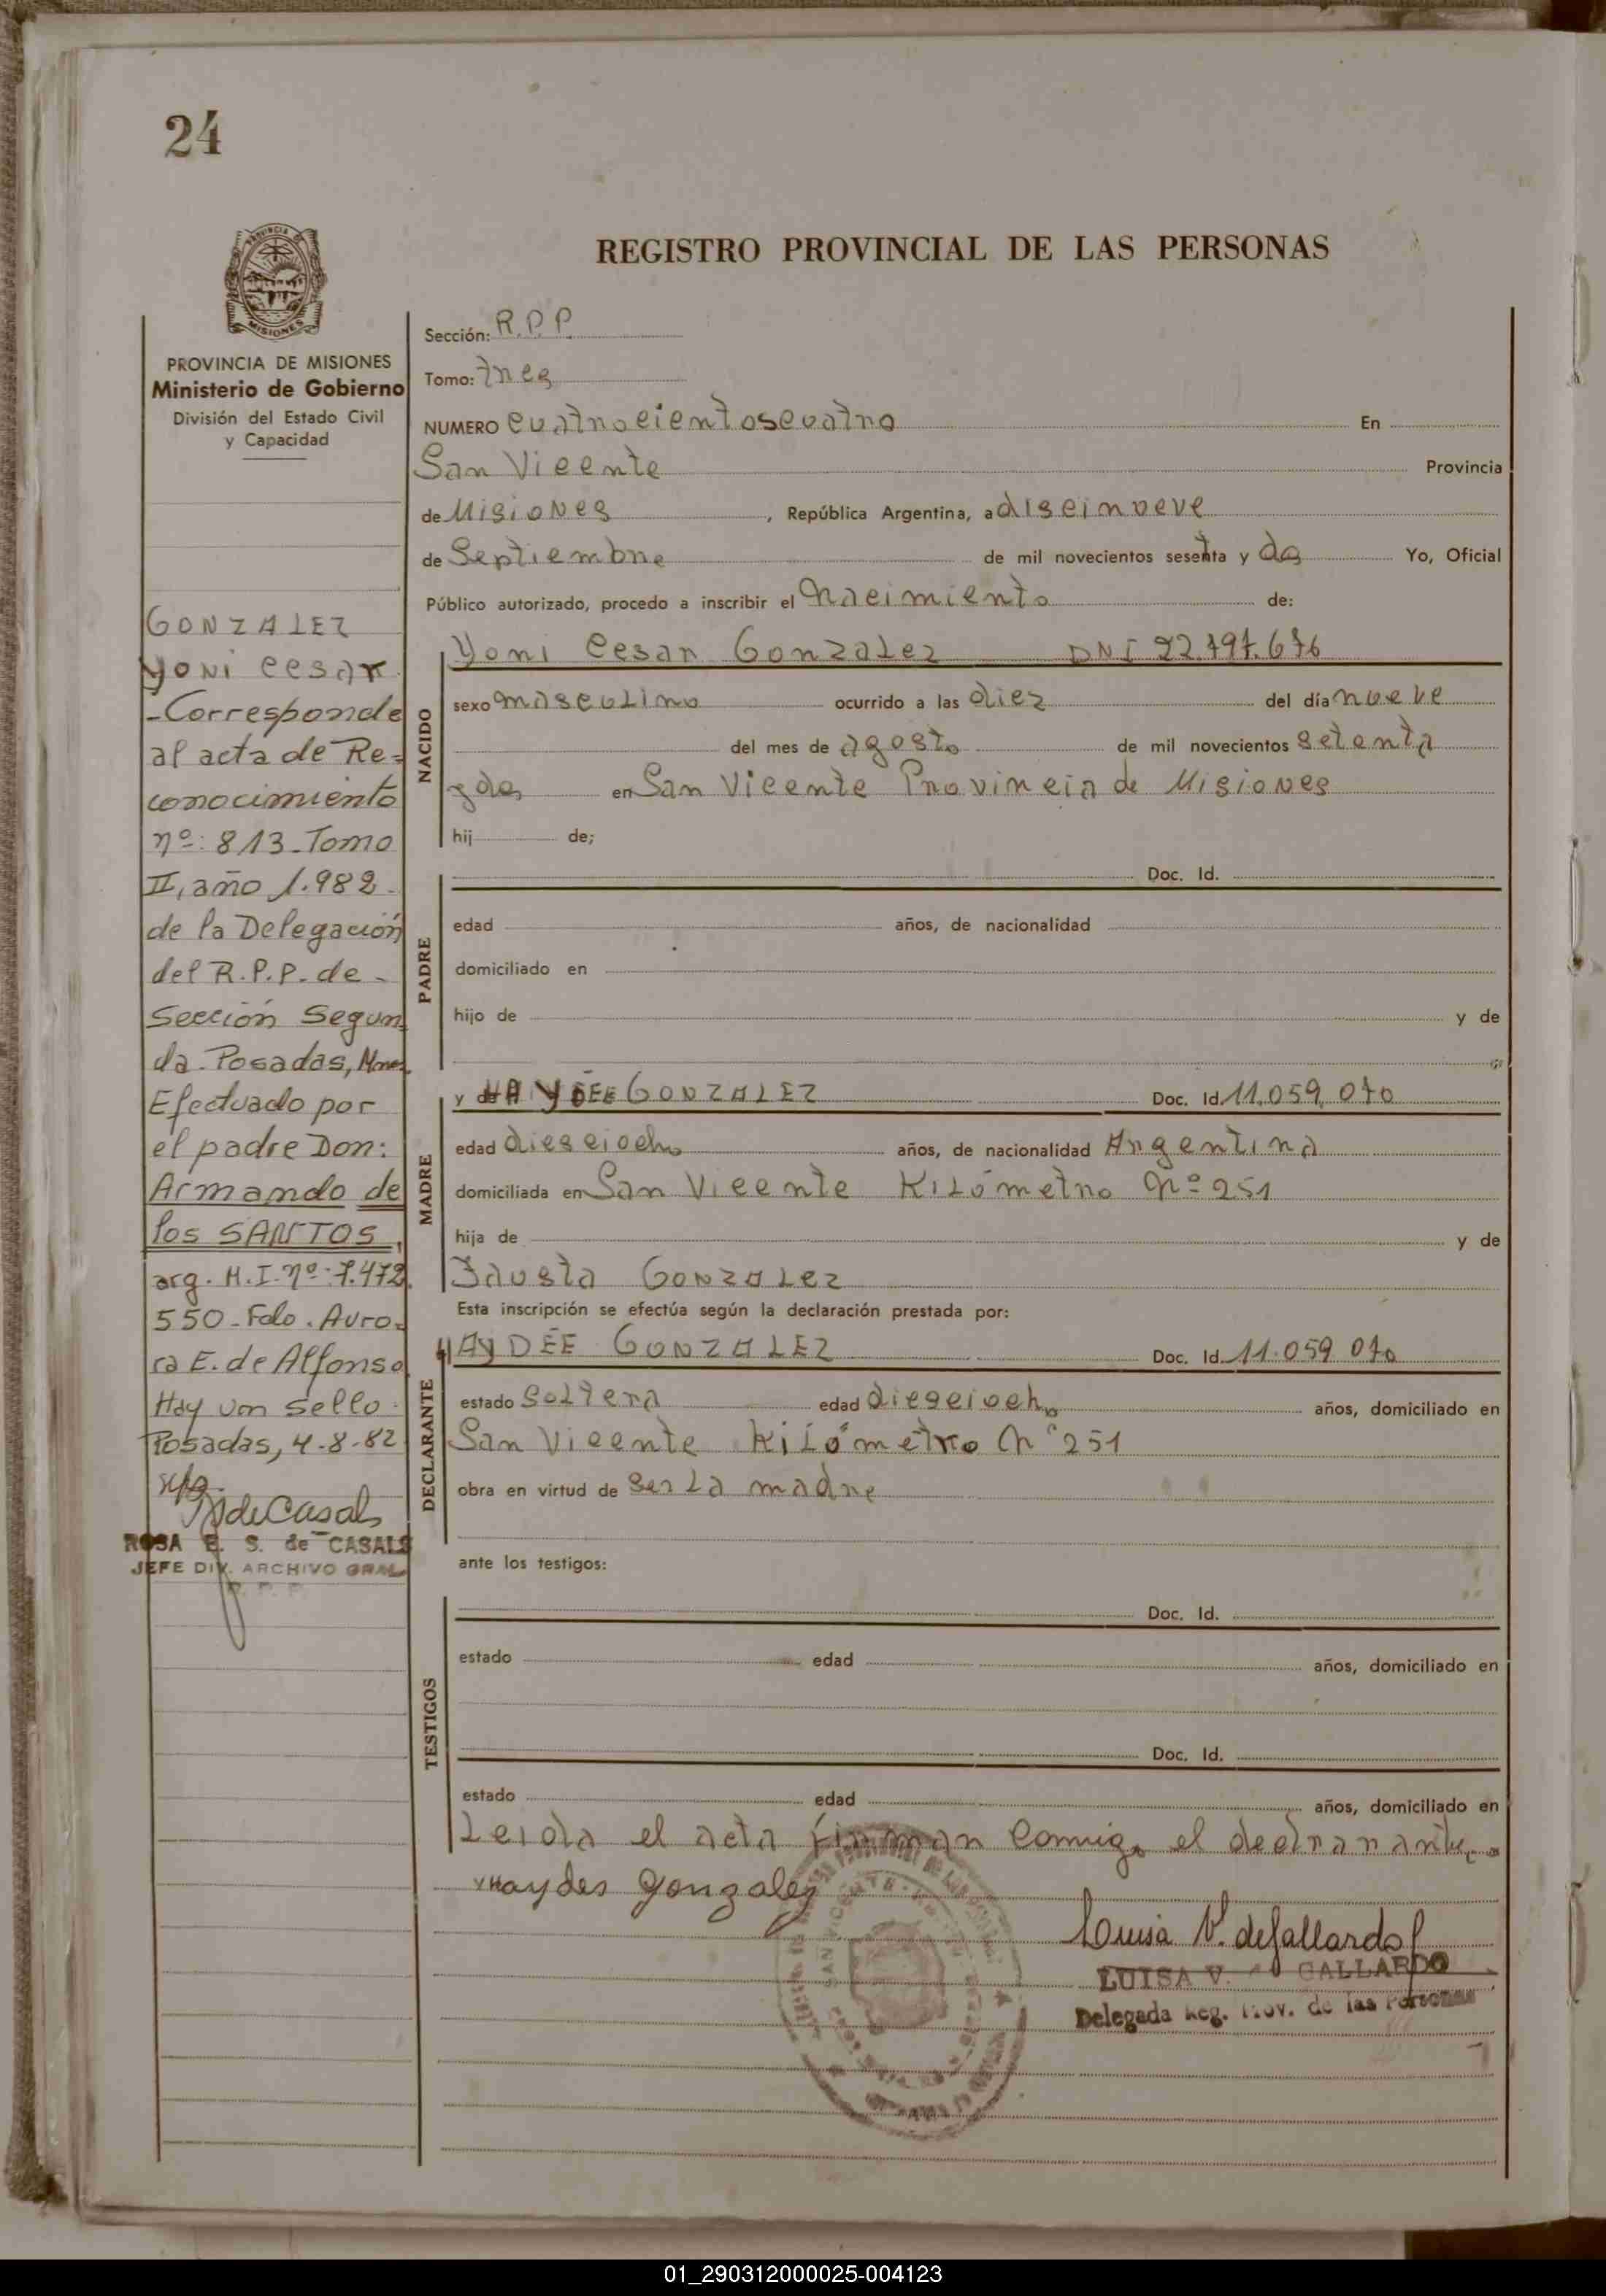 24
REGISTRO PROVINCIAL DE LAS PERSONAS
PROVINCIA DE MISIONES
Ministerio de Gobierno
División del Estado Civil
y Capacidad
GONZALEZ
YONI CESAR
-Corresponde
al acta de Re=
conocimiento
nº: 813-Tomo
II, año 1.982-
de la Delegación
del R.P.P. de-
Sección Segun
da-Posadas, Mnes.
Efectuado por
el padre Don:
Armando de
los SANTOS,
arg. M.I. nº: 7.472.
550-Fdo. Auro=
ra E. de Alfonso
Hay un sello.
Posadas, 4-8-82
ROSA E. S. de CASALS
JEFE DIV. ARCHIVO GRAL.
R. P. P.
Sección: R.P.P.
Tomo: Tres
NUMERO cuatrocientoscuatro En
San Vicente Provincia
de Misiones, República Argentina, a diseinueve
de Septiembre de mil novecientos sesenta y dos Yo, Oficial
Público autorizado, procedo a inscribir el nacimiento de:
Yoni Cesar Gonzalez DNI 22.797.676
NACIDO
sexo masculino ocurrido a las diez del día nueve
del mes de agosto de mil novecientos setenta
y dos en San Vicente Provincia de Misiones
hij de;
PADRE
Doc. Id.
edad años, de nacionalidad
domiciliado en
hijo de y de
MADRE
y de HAYDÉE GONZALEZ Doc. Id. 11.059.070
edad dieseiocho años, de nacionalidad Argentina
domiciliada en San Vicente Kilómetro Nº 251
hija de y de
Fausta Gonzalez
Esta inscripción se efectúa según la declaración prestada por:
DECLARANTE
HAYDÉE GONZALEZ Doc. Id. 11.059 070
estado Soltera edad dieseiocho años, domiciliado en
San Vicente Kilómetro Nº 251
obra en virtud de Ser La madre
ante los testigos:
TESTIGOS
Doc. Id.
estado edad años, domiciliado en
Doc. Id.
estado edad años, domiciliado en
Leida el acta firman Conmigo el declarante
Haydes Gonzalez
Luisa V. de Gallardo
LUISA V. de GALLARDO
Delegada Reg. Prov. de las Personas
01_290312000025-004123